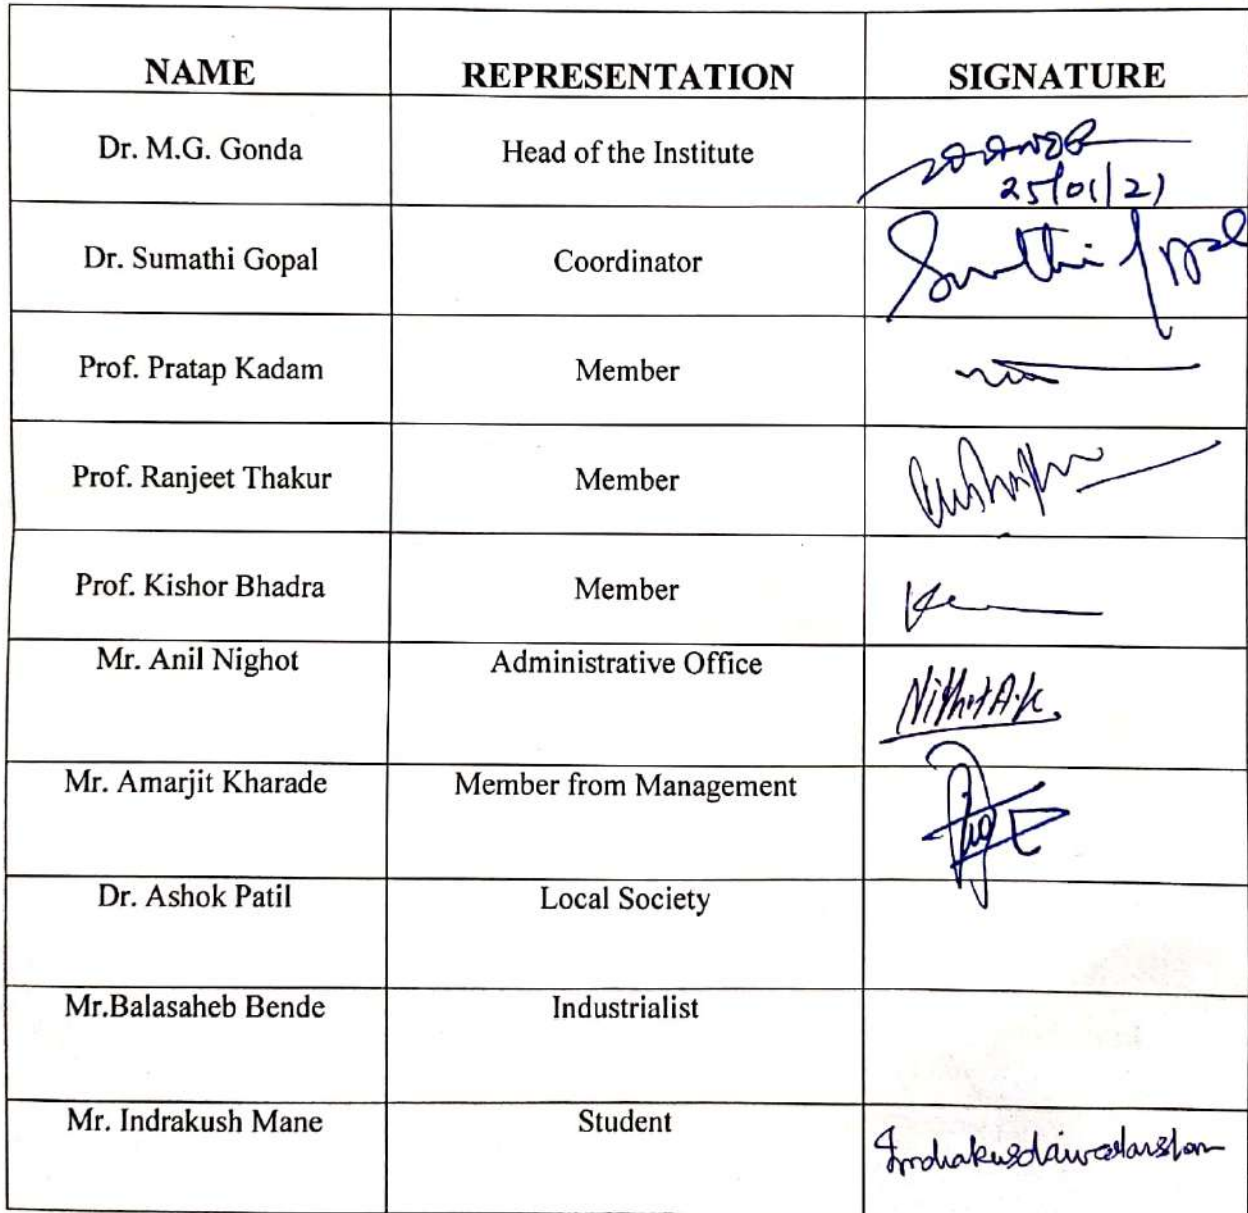 NAME REPRESENTATION SIGNATURE
Dr. M.G. Gonda Head of the Institute
25/01/21
Dr. Sumathi Gopal Coordinator Sumathi Gopal
Prof. Pratap Kadam Member
Prof. Ranjeet Thakur Member
Prof. Kishor Bhadra Member
Mr. Anil Nighot Administrative Office
Mr. Amarjit Kharade Member from Management
Dr. Ashok Patil Local Society
Mr.Balasaheb Bende Industrialist
Mr. Indrakush Mane Student